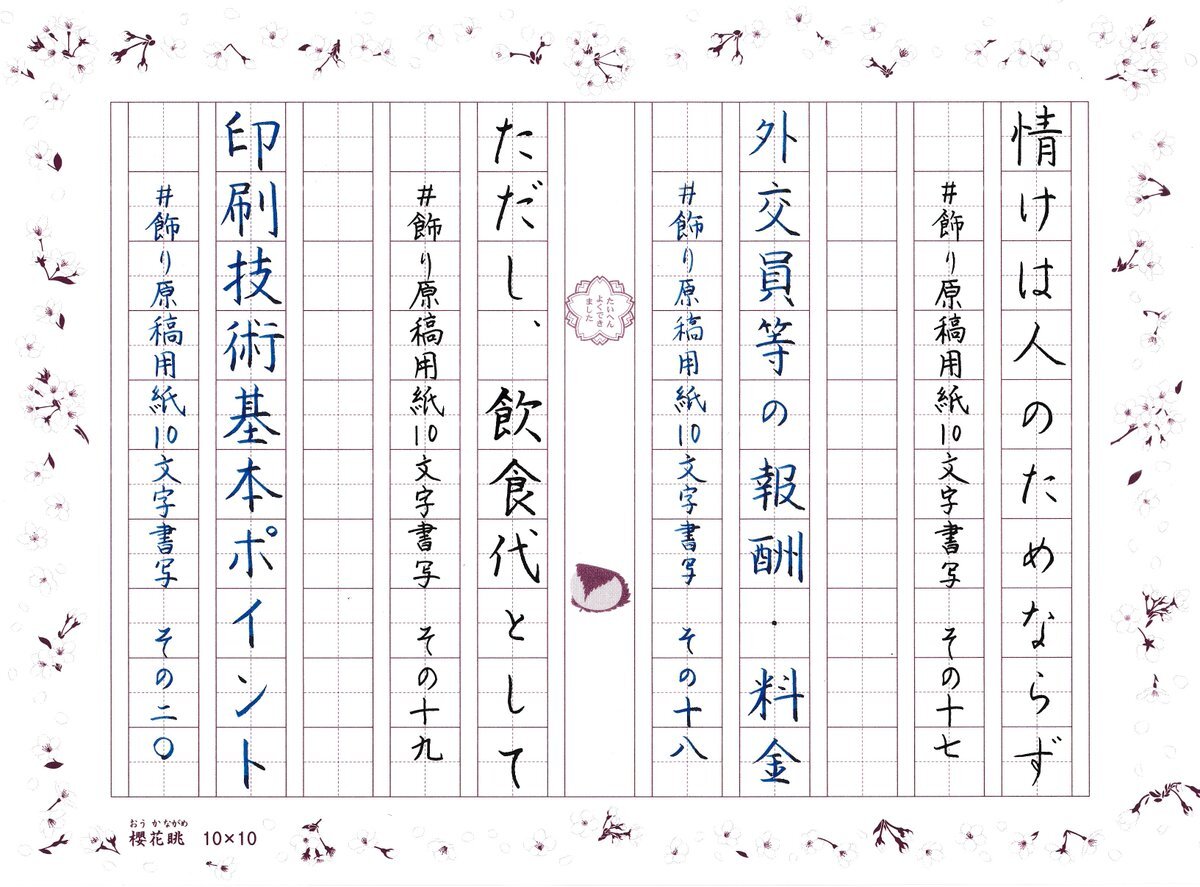 情けは人のためならず
#飾り原稿用紙10文字書写 その十七
外交員等の報酬・料金
#飾り原稿用紙10文字書写 その十八
たいへん
よくでき
ました
ただし、飲食代として
#飾り原稿用紙10文字書写 その十九
印刷技術基本ポイント
#飾り原稿用紙10文字書写 その二〇
おうかながめ
櫻花眺 10×10